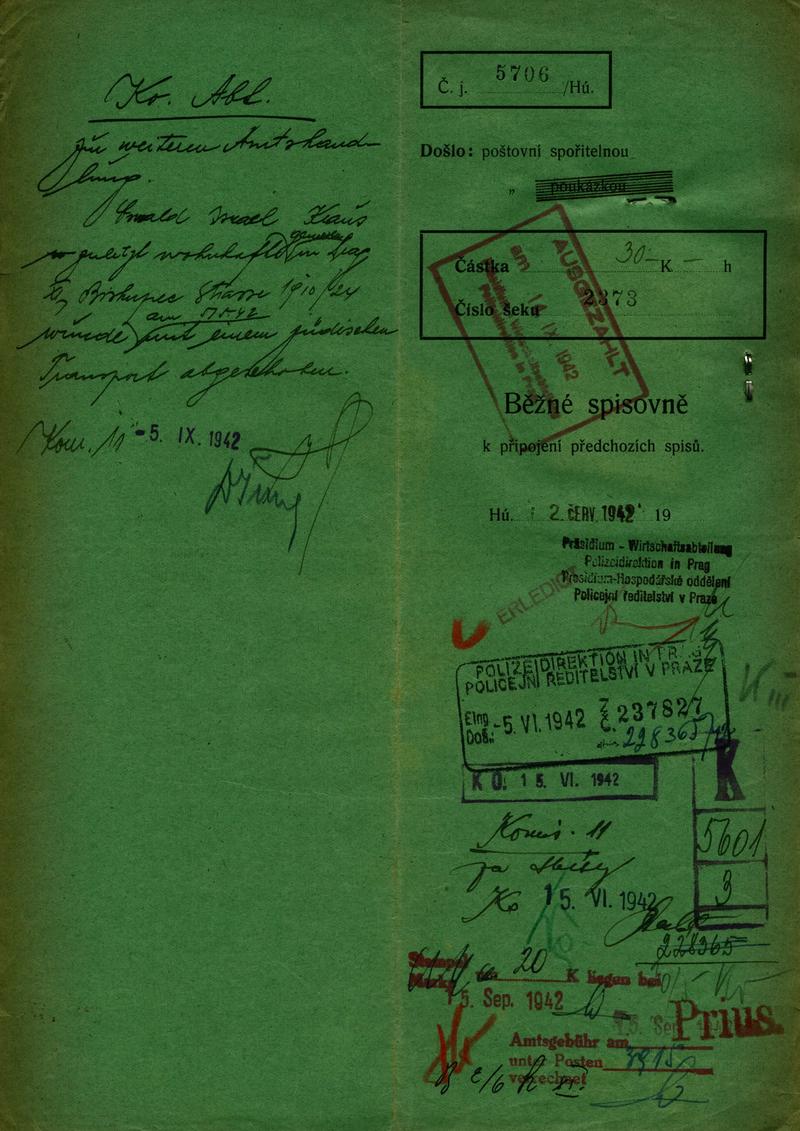 Ko. Abt.
zur weiteren Amtshand-
lung.
Oswald Israel Klaus
zuletzt wohnhaft gewesen in Prag
II, Biskupec Strasse 1910/
am 5.7.42
wurde mit einem jüdischen
Transport abgeschoben.
Kom. 11 -5. IX. 1942
Č. j. 5706 /Hú.
Došlo: poštovní spořitelnou
„ poukázkou
Částka 30 K - h
Číslo šeku 2373
AUSGEZAHLT
am 14. IX. 1942
Běžné spisovně
k připojení předchozích spisů.
Hú. 2. ČERV. 1942 19
Präsidium - Wirtschaftsabteilung
Polizeidirektion in Prag
Presidium-Hospodářské oddělení
Policejní ředitelství v Praze
ERLEDIGT
POLIZEIDIREKTION IN PRAG
POLICEJNÍ ŘEDITELSTVÍ V PRAZE
Eing. Doš.: -5. VI. 1942 Z. Č. 237827
228365/42
KO. 15. VI. 1942
K
5601
3
Komis. 11
Ko 15. VI. 1942
228365
Stempel
Marken 20 K liegen bei
15. Sep. 1942
Prius.
Amtsgebühr am
unter Posten 3915
verrechnet